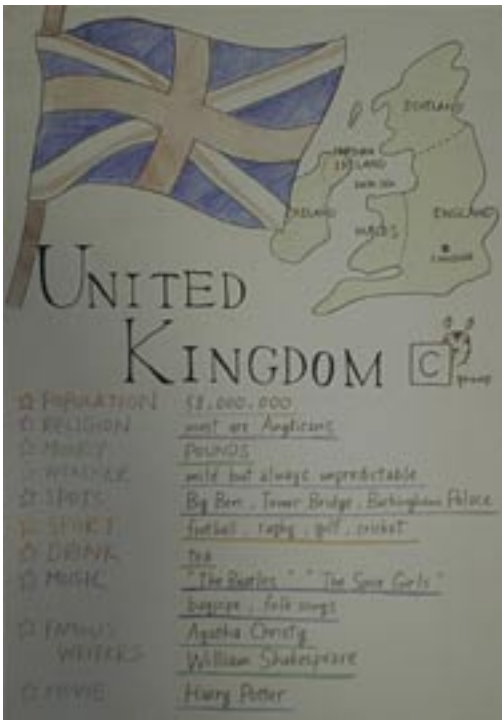 SCOTLAND
NORTHERN
IRELAND
IRELAND
ENGLAND
WALES
LONDON
UNITED
KINGDOM
C
group
☆ POPULATION 58,000,000
☆ RELIGION most are Anglicans
☆ MONEY POUNDS
☆ WEATHER mild but always unpredictable
☆ SPOTS Big Ben, Tower Bridge, Buckingham Palace
☆ SPORT football, rugby, golf, cricket
☆ DRINK tea
☆ MUSIC "The Beatles" "The Spice Girls"
bagpipe, folk songs
☆ FAMOUS Agatha Christy
WRITERS William Shakespeare
☆ MOVIE Harry Potter